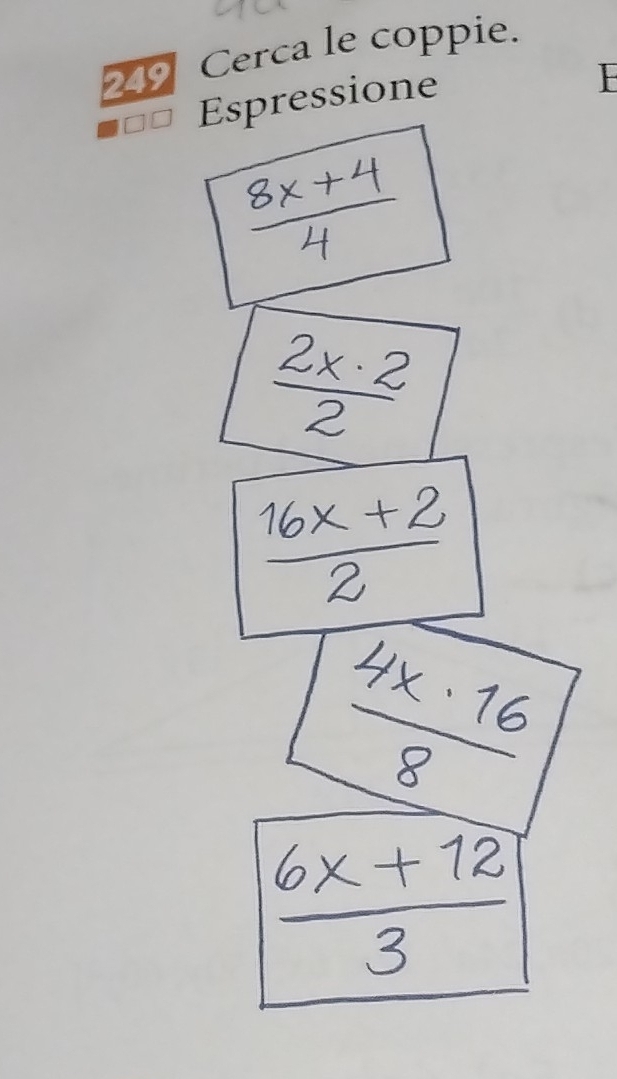 249 Cerca le coppie.
Espressione E
8x + 4
4
2x · 2
2
16x + 2
2
4x · 16
8
6x + 12
3